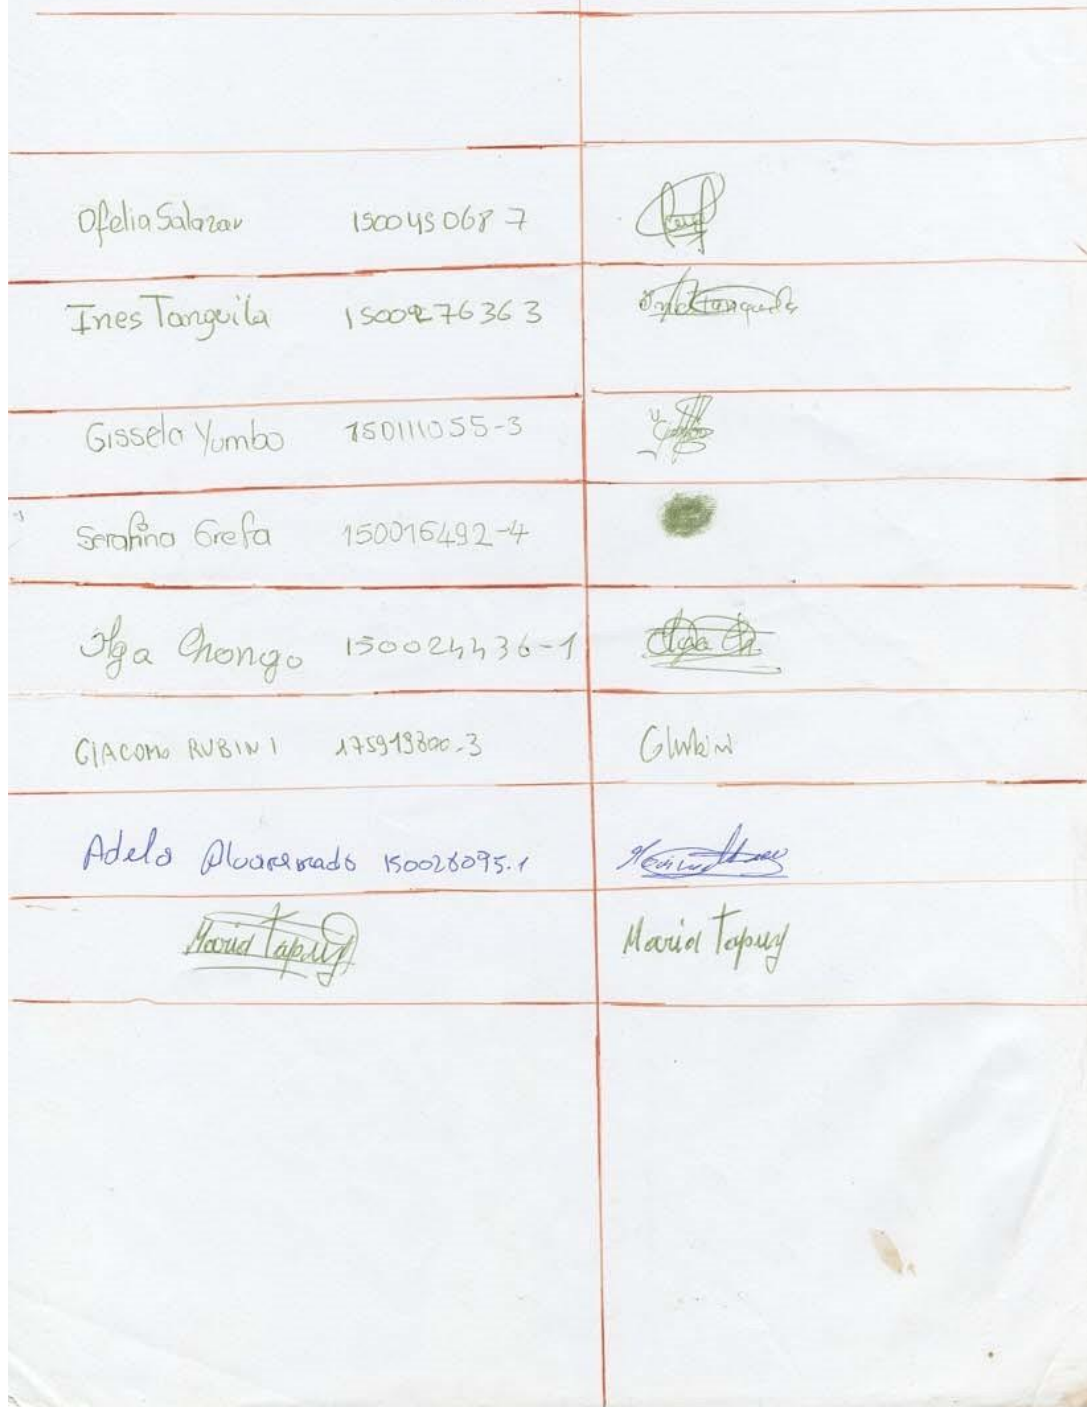 Ofelia Salazar 150045068 7
Ines Tanguila 1500276363
Gissela Yumbo 150111055-3
Serafina Grefa 150016492-4
Olga Chongo 150024436-1
GIACOMO RUBINI 175919300-3
Adela 150028095.1
Maria Tapuy Maria Tapuy